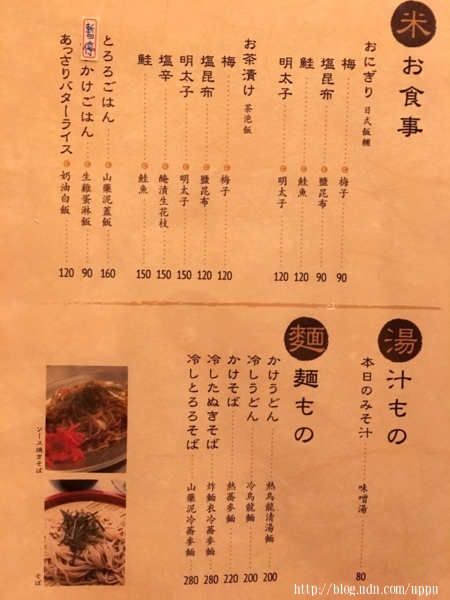 米 お食事
おにぎり 日式飯糰
梅 梅子 90
塩昆布 鹽昆布 90
鮭 鮭魚 120
明太子 明太子 120
お茶漬け 茶泡飯
梅 梅子 120
塩昆布 鹽昆布 120
明太子 明太子 150
塩辛 醃漬生花枝 150
鮭 鮭魚 150
とろろごはん 山藥泥蓋飯 160
かけごはん 生雞蛋淋飯 90
あっさりバターライス 奶油白飯 120
湯 汁もの
本日のみそ汁 味噌湯 80
麵 麺もの
かけうどん 熱烏龍清湯麵 200
冷しうどん 冷烏龍麵 200
かけそば 熱蕎麥麵 220
冷したぬきそば 炸麵衣冷蕎麥麵 280
冷しとろろそば 山藥泥冷蕎麥麵 280
ソース焼きそば
そば
http://blog.udn.com/uppu